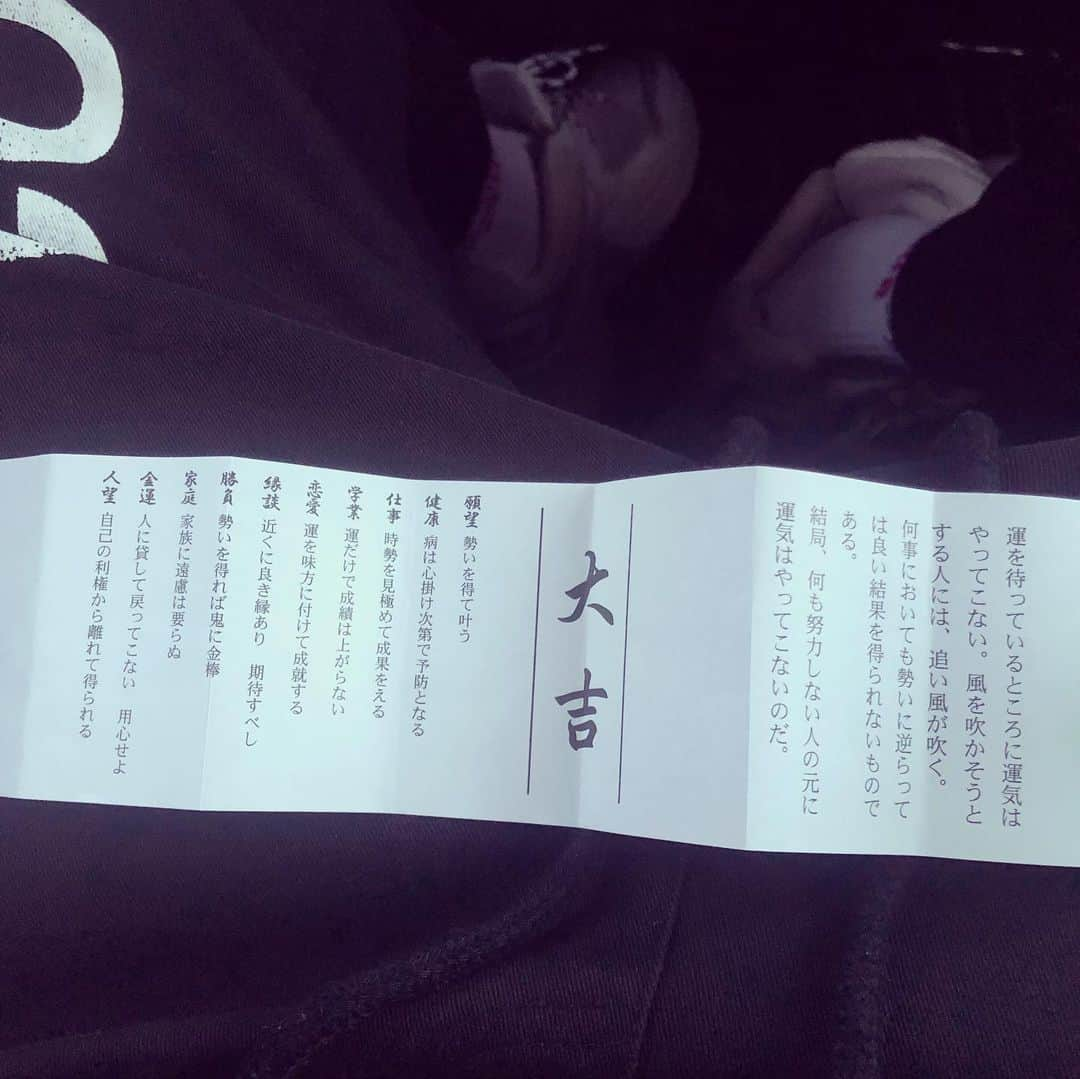 運を待っているところに運気は
やってこない。風を吹かそうと
する人には、追い風が吹く。
何事においても勢いに逆らって
は良い結果を得られないもので
ある。
結局、何も努力しない人の元に
運気はやってこないのだ。
大吉
願望 勢いを得て叶う
健康 病は心掛け次第で予防となる
仕事 時勢を見極めて成果をえる
学業 運だけで成績は上がらない
恋愛 運を味方に付けて成就する
縁談 近くに良き縁あり 期待すべし
勝負 勢いを得れば鬼に金棒
家庭 家族に遠慮は要らぬ
金運 人に貸して戻ってこない 用心せよ
人望 自己の利権から離れて得られる